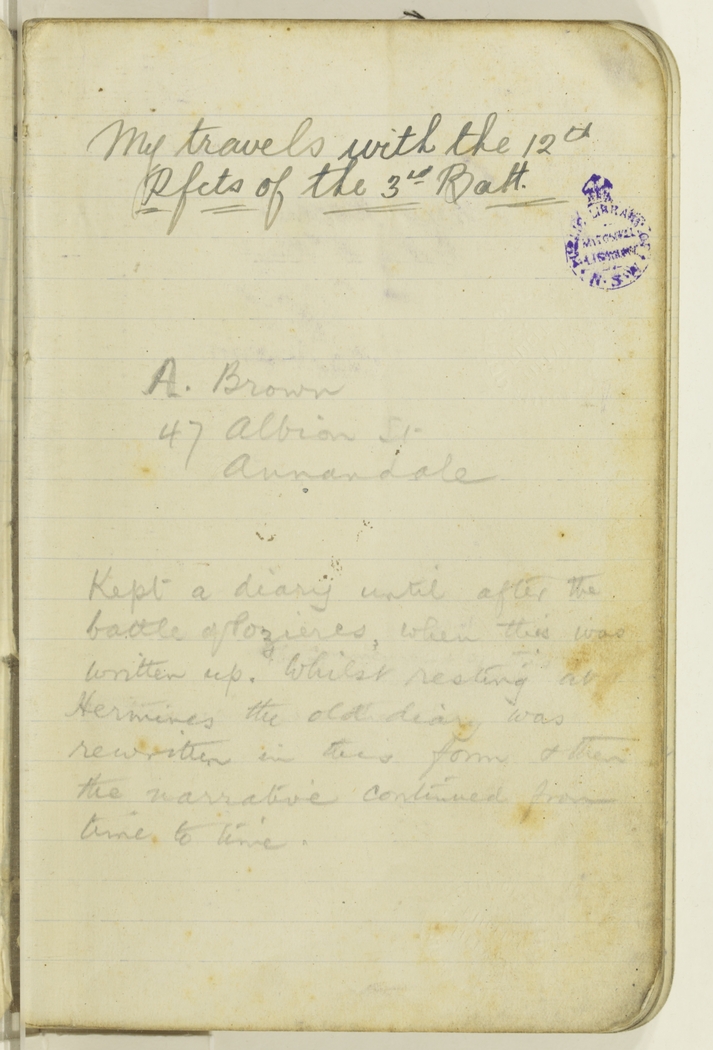 My travels with the 12th
Rfcts of the 3rd Batt.
PUBLIC LIBRARY OF N.S.W
MITCHELL
LIBRARY
A. Brown
47 Albion St
Annandale
Kept a diary until after the
battle of Pozieres, when this was
written up. Whilst resting at
the old diary was
rewritten in this form & then
the narrative continued from
time to time.